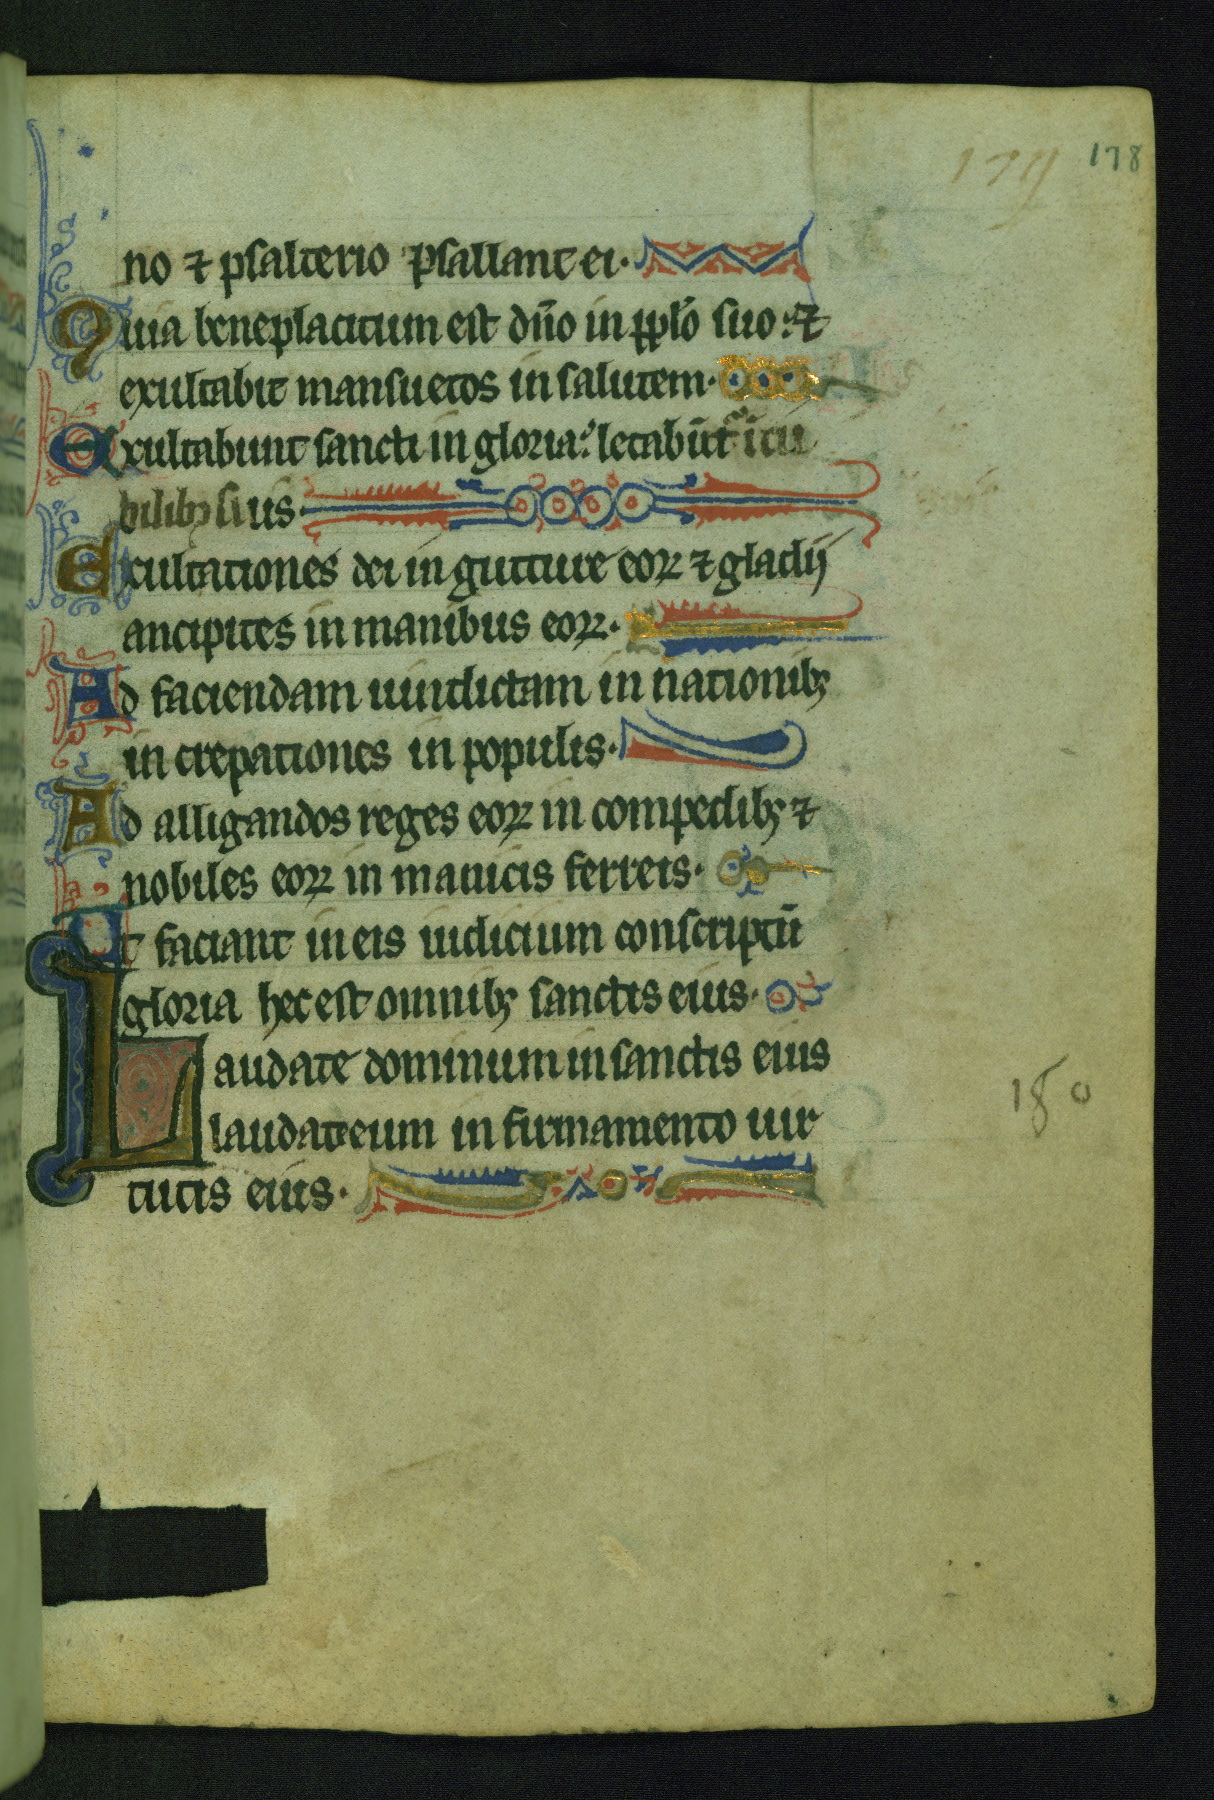 179 178
no ⁊ psalterio psallant ei·
Quia beneplacitum est dño in pplo suo: ⁊
exultabit mansuetos in salutem·
Exultabunt sancti in gloria: letabũt̃ ĩ cu
bilibꝫ suis·
Exultationes dei in gutture eoꝝ ⁊ gladij
ancipites in manibus eoꝝ·
Ad faciendam uindictam in nationibꝫ
in crepationes in populis·
Ad alligandos reges eoꝝ in compedibꝫ ⁊
nobiles eoꝝ in manicis ferreis·
Ut faciant in eis iudicium conscriptũ
gloria hec est omnibꝫ sanctis eius·
Laudate dominum in sanctis eius
laudate eum in firmamento uir
tutis eius·
180